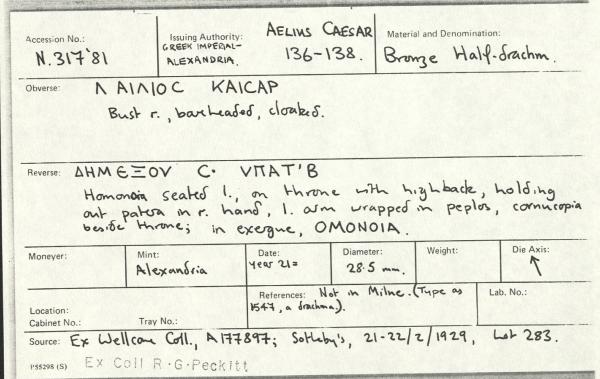 Accession No.:
N.317'81
Issuing Authority:
GREEK IMPERIAL-
ALEXANDRIA.
AELIUS CAESAR
136-138.
Material and Denomination:
Bronze Half-drachm.
Obverse: Λ ΑΙΛΙΟC ΚΑΙCΑΡ
Bust r., bareheaded, cloaked.
Reverse: ΔΗΜЄΞΟV C· VΠΑΤ'Β
Homonoia seated l., on throne with highback, holding
out patera in r. hand, l. arm wrapped in peplos, cornucopia
beside throne; in exergue, OMONOIA.
Moneyer:
Mint:
Alexandria
Date:
Year 21=
Diameter:
28.5 mm.
Weight:
Die Axis:
↖
Location:
Cabinet No.:
Tray No.:
References: Not in Milne. (Type as
1547, a drachma).
Lab. No.:
Source: Ex Wellcome Coll., A177897; Sotheby's, 21-22/2/1929, Lot 283.
P55298 (S)
Ex Coll R.G.Peckitt